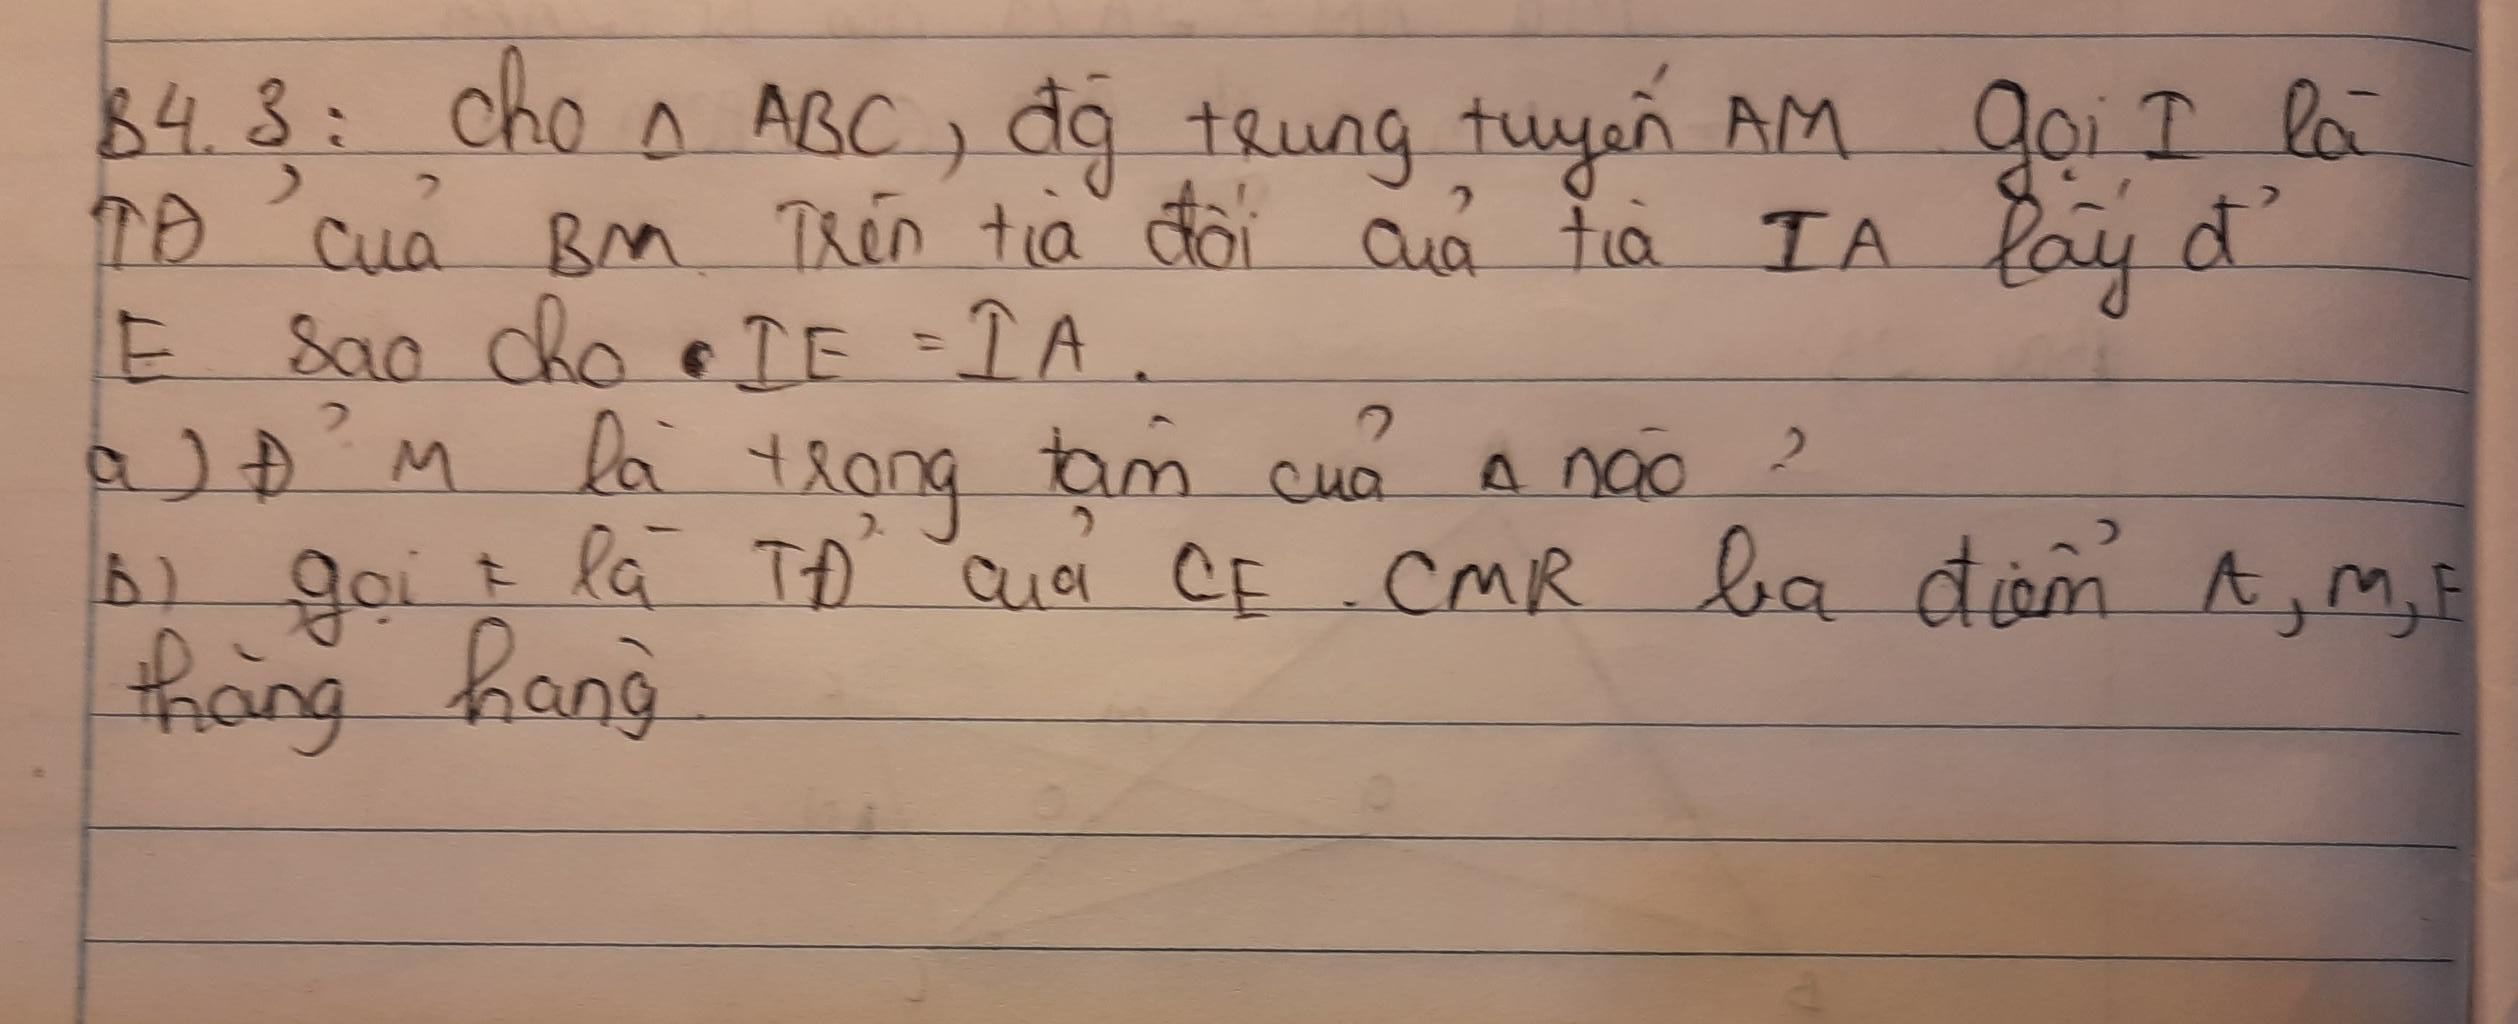 B4.3: Cho Δ ABC, đg̃ trung tuyến AM gọi I là
TĐ̉ của BM. Trên tia đối của tia IA lấy đ̉
E sao cho IE = IA.
a) Đ̉ M là trọng tâm của Δ nào?
b) gọi F là TĐ̉ của CE. CMR ba điểm A, M, F
thẳng hàng.